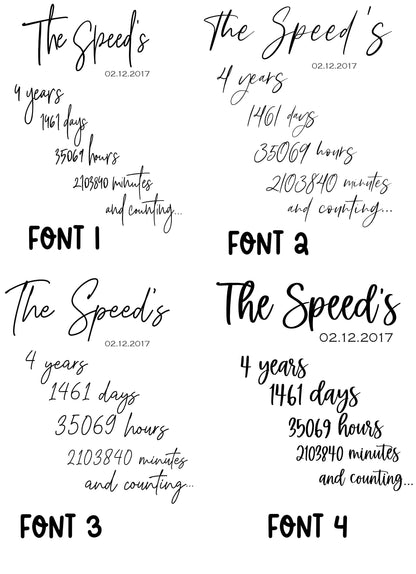 The Speed's
02.12.2017
4 years
1461 days
35069 hours
2103840 minutes
and counting...
FONT 1
The Speed's
02.12.2017
4 years
1461 days
35069 hours
2103840 minutes
and counting...
FONT 2
The Speed's
02.12.2017
4 years
1461 days
35069 hours
2103840 minutes
and counting...
FONT 3
The Speed's
02.12.2017
4 years
1461 days
35069 hours
2103840 minutes
and counting...
FONT 4